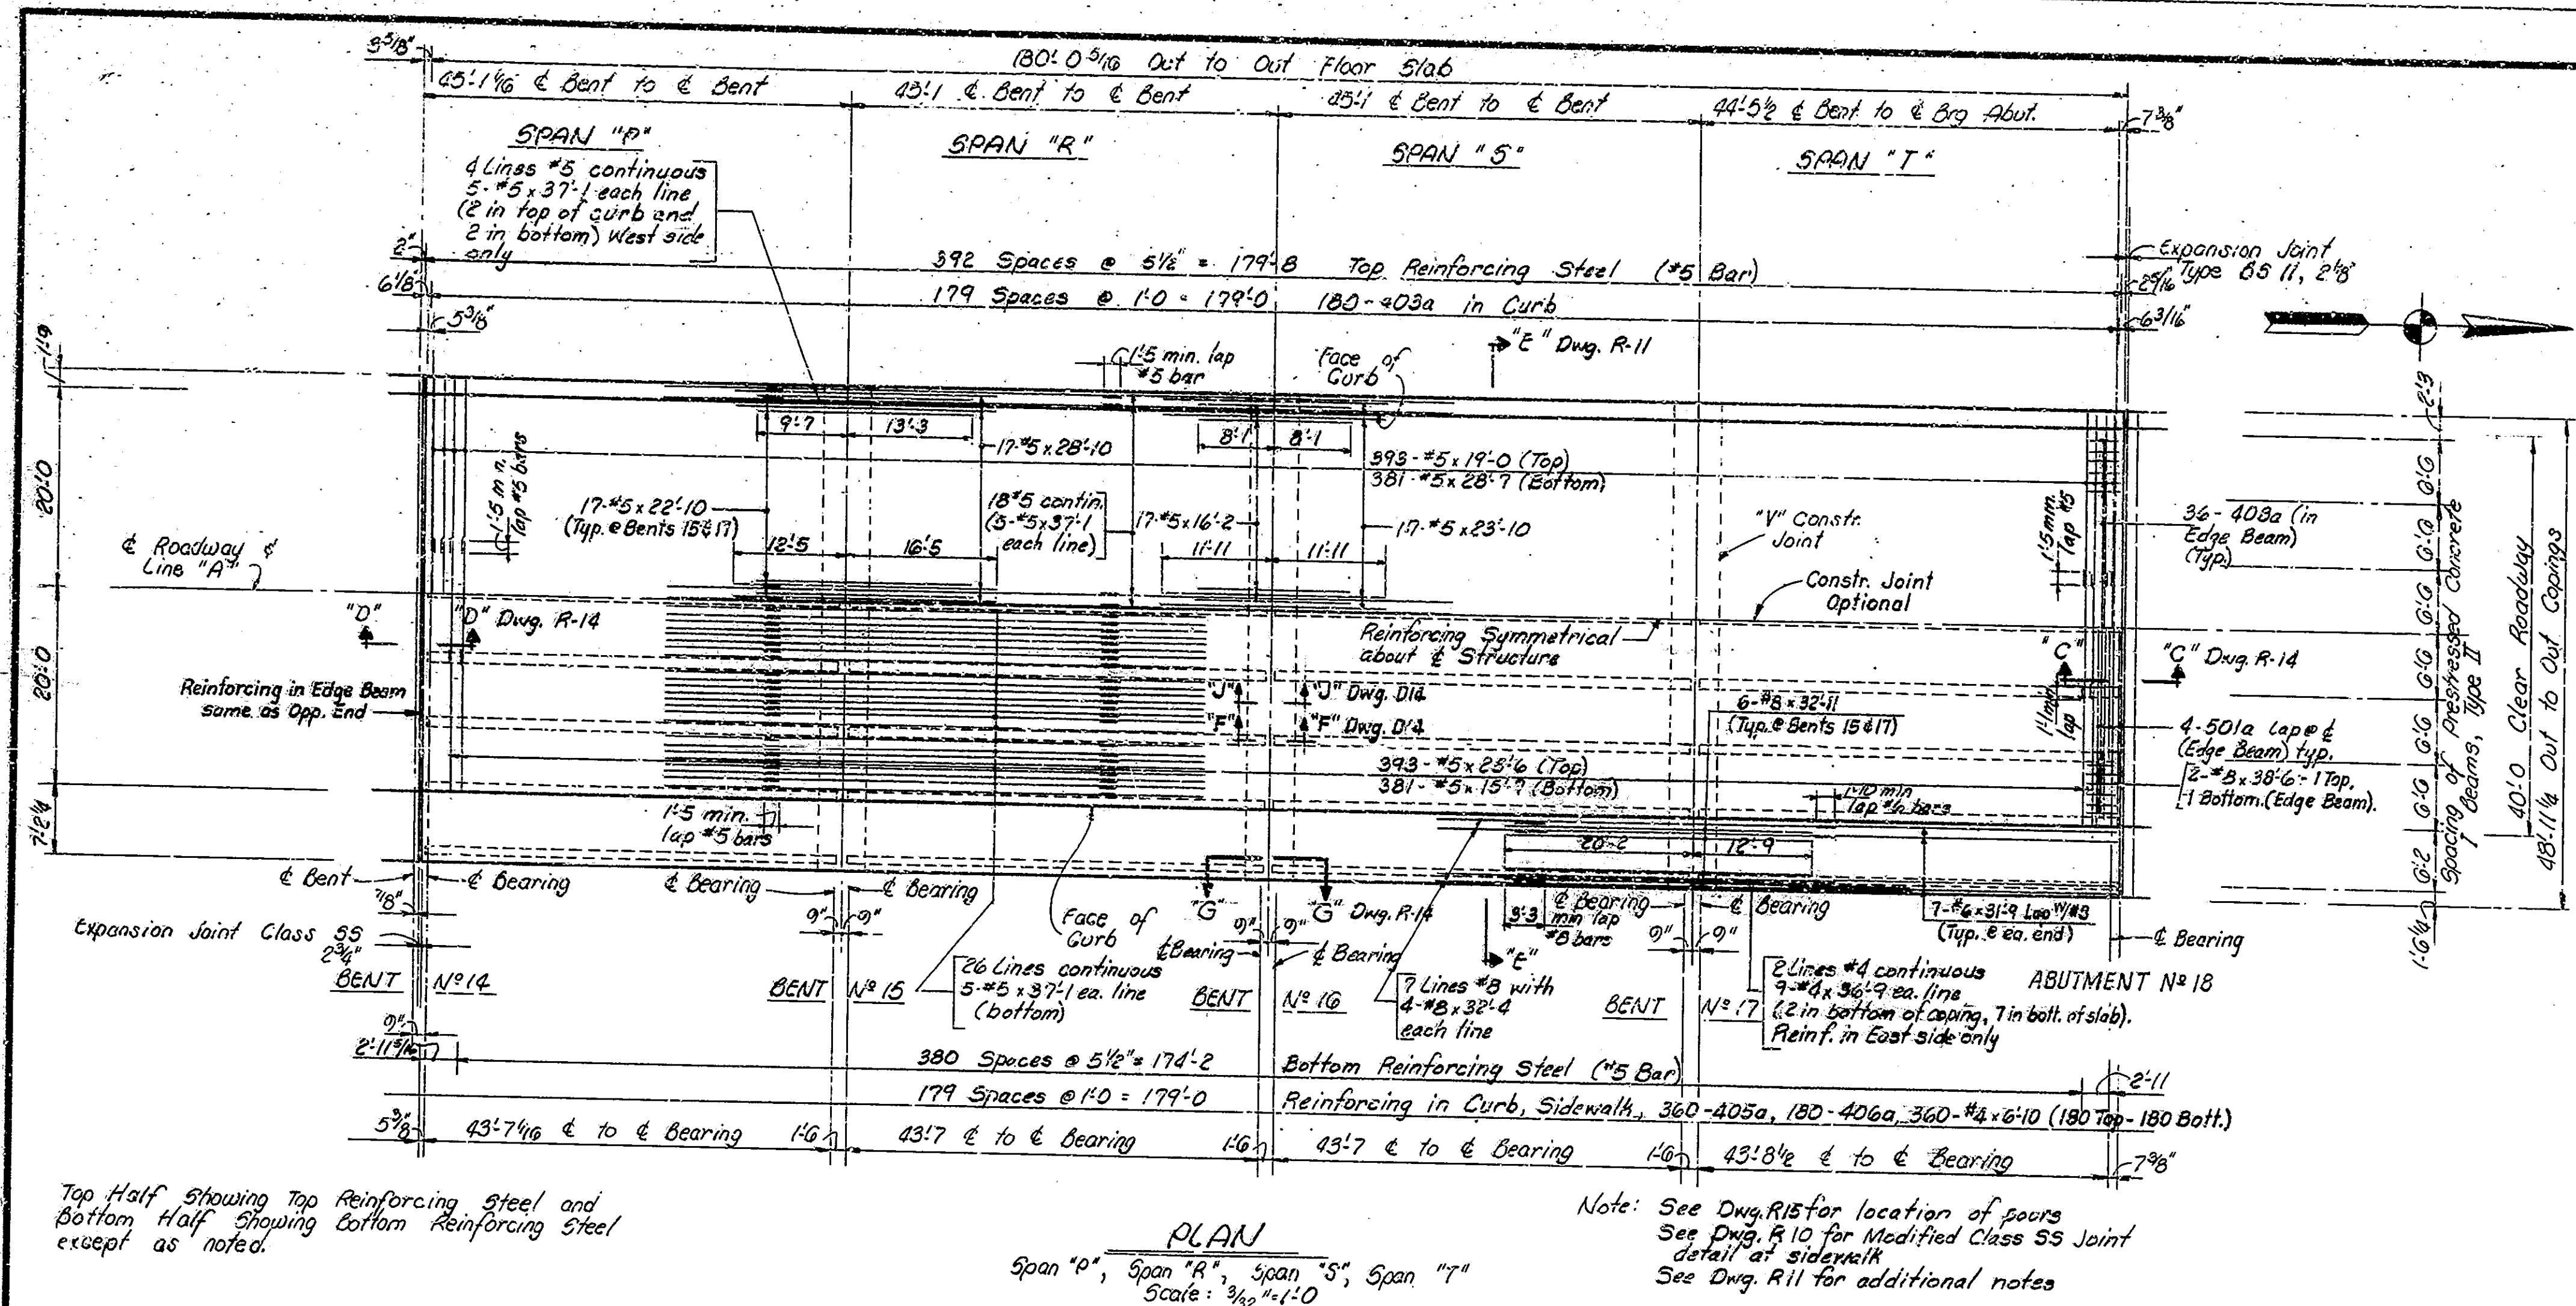 180'-0 5/16 Out to Out Floor Slab
45'-1 1/16 ℄ Bent to ℄ Bent
45'-1 ℄ Bent to ℄ Bent
45'-1 ℄ Bent to ℄ Bent
44'-5 1/2 ℄ Bent to ℄ Brg Abut.
7 3/8"
SPAN "P"
SPAN "R"
SPAN "S"
SPAN "T"
4 Lines #5 continuous
5-#5 x 37'-1 each line
(2 in top of curb and
2 in bottom) West side
only
2"
392 Spaces @ 5 1/2" = 179'-8 Top Reinforcing Steel (#5 Bar)
Expansion Joint
Type BS 11, 2 1/8"
6 1/8"
179 Spaces @ 1'-0 = 179'-0 180-403a in Curb
2 5/16
5 3/8"
6 3/16"
1'-9
20'-0
20'-0
7'-2 1/4
1'-5 min. lap
#5 bar
Face of
Curb
"E" Dwg. R-11
9'-7
13'-3
8'-1
8'-1
17-#5 x 28'-10
393-#5 x 19'-0 (Top)
381-#5 x 28'-7 (Bottom)
lap #5 bars
17-#5 x 22'-10
(Typ. @ Bents 15 & 17)
18 #5 contin.
(5-#5 x 37'-1
each line)
17-#5 x 16'-2
17-#5 x 23'-10
"V" Constr.
Joint
1'-5 min.
lap #5
36-408a (in
Edge Beam)
(Typ.)
12'-5
16'-5
11'-11
11'-11
℄ Roadway &
Line "A"
Constr. Joint
Optional
"D"
"D" Dwg. R-14
Reinforcing Symmetrical
about ℄ Structure
"C"
"C" Dwg. R-14
Reinforcing in Edge Beam
same as Opp. End
"J"
"J" Dwg. D14
"F"
"F" Dwg. D14
6-#8 x 32'-11
(Typ. @ Bents 15 & 17)
1'-1 min
lap
4-501a Lap @ ℄
(Edge Beam) typ.
2-#8 x 38'-6 - 1 Top,
1 Bottom. (Edge Beam).
393-#5 x 23'-6 (Top)
381-#5 x 15'-7 (Bottom)
1'-10 min
lap #6 bars
1'-5 min.
lap #5 bars
20'-2
12'-9
2'-3
6'-6
6'-6
6'-6
6'-6
6'-6
6'-6
6'-2
1'-6 1/4
Spacing of Prestressed Concrete
I Beams, Type II
40'-0 Clear Roadway
48'-11 1/4 Out to Out Copings
℄ Bent
℄ Bearing
℄ Bearing
℄ Bearing
7/8"
9"
9"
Face of
Curb
"G"
"G" Dwg. R-14
9"
9"
℄ Bearing
℄ Bearing
3'-3
min lap
#8 bars
℄ Bearing
℄ Bearing
9"
9"
7-#6 x 31'-9 Lap W/#8
(Typ. @ ea. end)
℄ Bearing
Expansion Joint Class SS
2 3/4"
"E"
BENT Nº 14
BENT Nº 15
26 Lines continuous
5-#5 x 37'-1 ea. line
(bottom)
BENT Nº 16
7 Lines #8 with
4-#8 x 32'-4
each line
BENT Nº 17
2 Lines #4 continuous
9-#4 x 36'-9 ea. line
(2 in bottom of coping, 7 in bott. of slab).
Reinf. in East side only
ABUTMENT Nº 18
9"
2'-11 5/16
380 Spaces @ 5 1/2" = 174'-2 Bottom Reinforcing Steel (#5 Bar)
2'-11
179 Spaces @ 1'-0 = 179'-0 Reinforcing in Curb, Sidewalk, 360-405a, 180-406a, 360-#4 x 6'-10 (180 Top - 180 Bott.)
5 3/8"
43'-7 1/16 ℄ to ℄ Bearing
1'-6
43'-7 ℄ to ℄ Bearing
1'-6
43'-7 ℄ to ℄ Bearing
1'-6
43'-8 1/2 ℄ to ℄ Bearing
7 3/8"
Top Half Showing Top Reinforcing Steel and
Bottom Half Showing Bottom Reinforcing Steel
except as noted.
PLAN
Span "P", Span "R", Span "S", Span "T"
Scale: 3/32" = 1'-0
Note: See Dwg. R15 for location of pours
See Dwg. R10 for Modified Class SS Joint
detail at sidewalk
See Dwg. R11 for additional notes